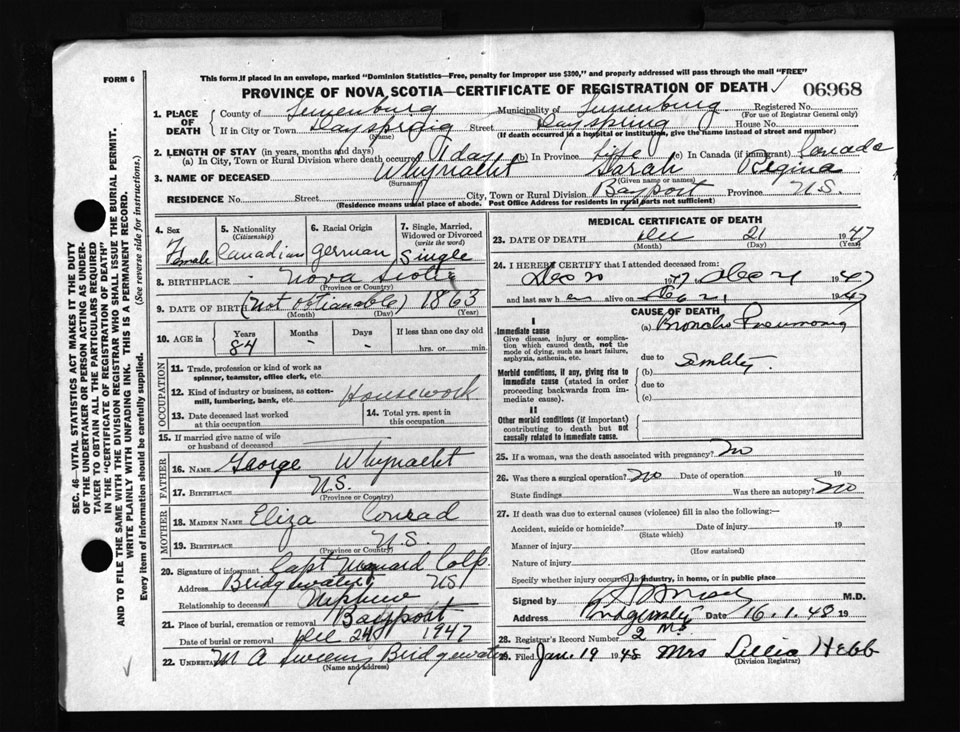 FORM 6
This form, if placed in an envelope, marked "Dominion Statistics—Free, penalty for improper use $300," and properly addressed will pass through the mail "FREE"
PROVINCE OF NOVA SCOTIA—CERTIFICATE OF REGISTRATION OF DEATH
06968
1. PLACE OF DEATH
County of Lunenburg Municipality of Lunenburg Registered No.
(For use of Registrar General only)
If in City or Town Dayspring (Name) Street Dayspring House No.
(If death occurred in a hospital or institution, give the name instead of street and number)
2. LENGTH OF STAY (in years, months and days)
(a) In City, Town or Rural Division where death occurred 1 day (b) In Province Life (c) In Canada (if immigrant) Canada
3. NAME OF DECEASED Whynacht Sarah Regina
(Surname) (Given name or names)
RESIDENCE No. Street City, Town or Rural Division Bayport Province N.S.
(Residence means usual place of abode. Post Office Address for residents in rural parts not sufficient)
4. Sex Female
5. Nationality (Citizenship) Canadian
6. Racial Origin German
7. Single, Married, Widowed or Divorced (write the word) Single
8. BIRTHPLACE Nova Scotia
(Province or Country)
9. DATE OF BIRTH (Not obtianable) 1863
(Month) (Day) (Year)
10. AGE in Years 84 Months - Days - If less than one day old hrs. or min.
OCCUPATION
11. Trade, profession or kind of work as spinner, teamster, office clerk, etc.
12. Kind of industry or business, as cotton-mill, lumbering, bank, etc. Housework
13. Date deceased last worked at this occupation
14. Total yrs. spent in this occupation
15. If married give name of wife or husband of deceased
FATHER
16. NAME George Whynacht
17. BIRTHPLACE N.S.
(Province or Country)
MOTHER
18. MAIDEN NAME Eliza Conrad
19. BIRTHPLACE N.S.
(Province or Country)
20. Signature of informant Capt Colp
Address Bridgewater NS
Relationship to deceased Nephew
21. Place of burial, cremation or removal Bayport
Date of burial or removal Dec 24 1947
22. UNDERTAKER M A Sweeny Bridgewater
(Name and address)
MEDICAL CERTIFICATE OF DEATH
23. DATE OF DEATH Dec 21 1947
(Month) (Day) (Year)
24. I HEREBY CERTIFY that I attended deceased from:
Dec 20 1947 to Dec 21 1947
and last saw her alive on Dec 21 1947
CAUSE OF DEATH
I
Immediate cause
Give disease, injury or complication which caused death, not the mode of dying, such as heart failure, asphyxia, asthenia, etc.
(a) Broncho Pneumonia
due to
Morbid conditions, if any, giving rise to immediate cause (stated in order proceeding backwards from immediate cause).
(b) Senility
due to
(c)
II
Other morbid conditions (if important) contributing to death but not causally related to immediate cause.
25. If a woman, was the death associated with pregnancy? No
26. Was there a surgical operation? No Date of operation 19
State findings Was there an autopsy? No
27. If death was due to external causes (violence) fill in also the following:—
Accident, suicide or homicide? Date of injury 19
(State which)
Manner of injury
(How sustained)
Nature of injury
Specify whether injury occurred in industry, in home, or in public place
Signed by M.D.
Address Bridgewater Date 16.1.48 19
28. Registrar's Record Number 2
29. Filed Jan. 19 1948 Mrs Lillia Hebb
(Division Registrar)
SEC. 46—VITAL STATISTICS ACT MAKES IT THE DUTY
OF THE UNDERTAKER OR PERSON ACTING AS UNDER-
TAKER TO OBTAIN ALL THE PARTICULARS REQUIRED
IN THE "CERTIFICATE OF REGISTRATION OF DEATH"
AND TO FILE THE SAME WITH THE DIVISION REGISTRAR WHO SHALL ISSUE THE BURIAL PERMIT.
WRITE PLAINLY WITH UNFADING INK. THIS IS A PERMANENT RECORD.
Every item of information should be carefully supplied. (See reverse side for instructions.)